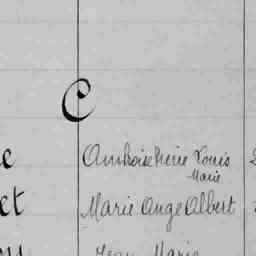 C
e Ambroise Louis
Marie
et Marie Ange Albert
Jean Marie